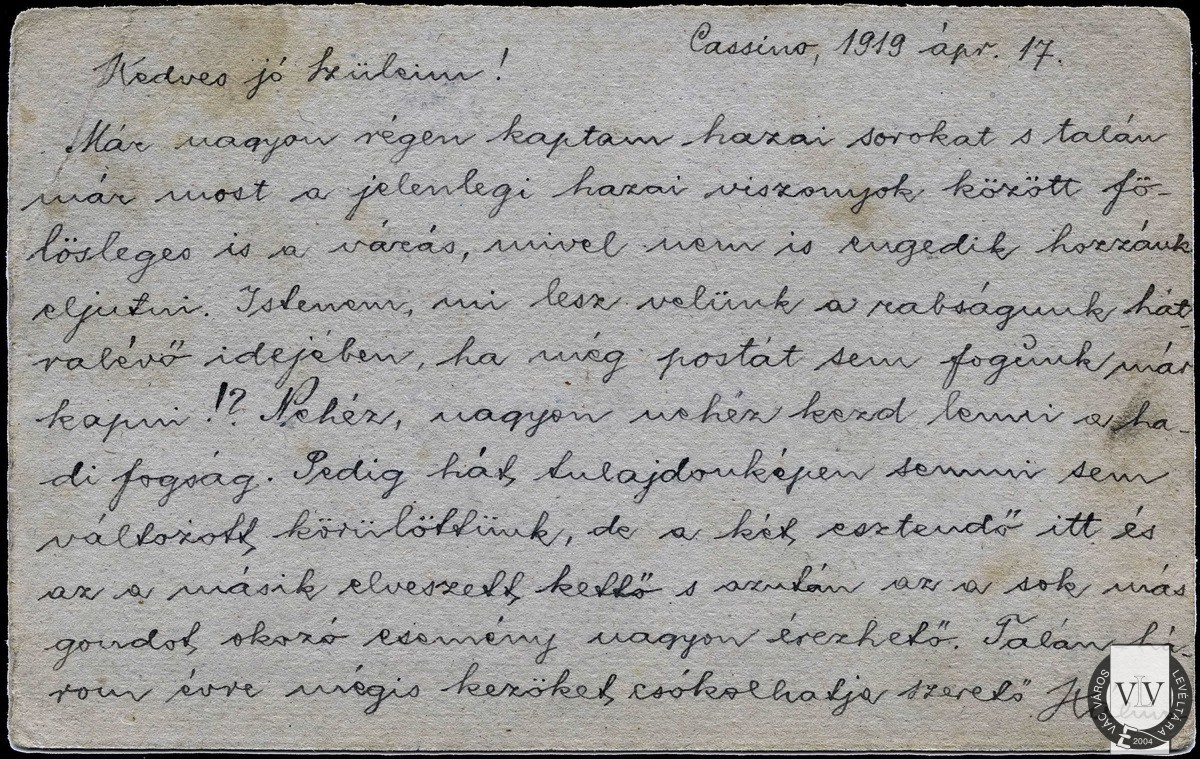 Cassino, 1919 ápr. 17.
Kedves jó Szüleim!
Már nagyon régen kaptam hazai sorokat s talán
már most a jelenlegi hazai viszonyok között fö-
lösleges is a várás, mivel nem is engedik hozzánk
eljutni. Istenem, mi lesz velünk a rabságunk hát-
ralévő idejében, ha még postát sem fogunk már
kapni!? Nehéz, nagyon nehéz kezd lenni a ha-
di fogság. Pedig hát tulajdonképen semmi sem
változott körülöttünk, de a két esztendő itt és
az a másik elveszett kettő s azután az a sok más
gondot okozó esemény nagyon érezhető. Talán há-
rom évre mégis kezöket csókolhatja szerető
VÁC VÁROS LEVÉLTÁRA
VLV
2004